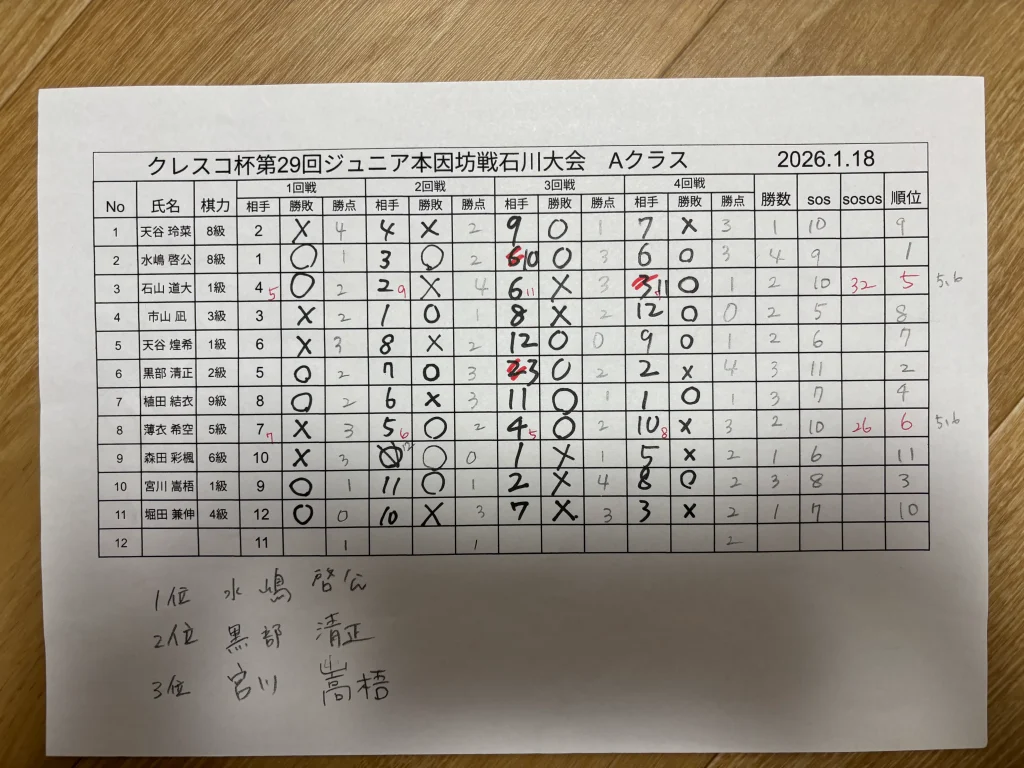 クレスコ杯第29回ジュニア本因坊戦石川大会 Aクラス 2026.1.18
1回戦 2回戦 3回戦 4回戦
No 氏名 棋力 相手 勝敗 勝点 相手 勝敗 勝点 相手 勝敗 勝点 相手 勝敗 勝点 勝数 sos sosos 順位
1 天谷 玲菜 8級 2 × 4 4 × 2 9 ○ 1 7 × 3 1 10 9
2 水嶋 啓公 8級 1 ○ 1 3 ○ 2 10 ○ 3 6 ○ 3 4 9 1
3 石山 道大 1級 4 5 ○ 2 2 9 × 4 6 11 × 3 11 ○ 1 2 10 32 5 5,6
4 市山 凪 3級 3 × 2 1 ○ 1 8 × 2 12 ○ 0 2 5 8
5 天谷 煌希 1級 6 × 3 8 × 2 12 ○ 0 9 ○ 1 2 6 7
6 黒部 清正 2級 5 ○ 2 7 ○ 3 3 ○ 2 2 × 4 3 11 2
7 植田 結衣 9級 8 ○ 2 6 × 3 11 ○ 1 1 ○ 1 3 7 4
8 薄衣 希空 5級 7 7 × 3 5 6 ○ 2 4 5 ○ 2 10 8 × 3 2 10 26 6 5,6
9 森田 彩楓 6級 10 × 3 12 ○ 0 1 × 1 5 × 2 1 6 11
10 宮川 嵩梧 1級 9 ○ 1 11 ○ 1 2 × 4 8 ○ 2 3 8 3
11 堀田 兼伸 4級 12 ○ 0 10 × 3 7 × 3 3 × 2 1 7 10
12 11 1 1 2
1位 水嶋 啓公
2位 黒部 清正
3位 宮川 嵩梧